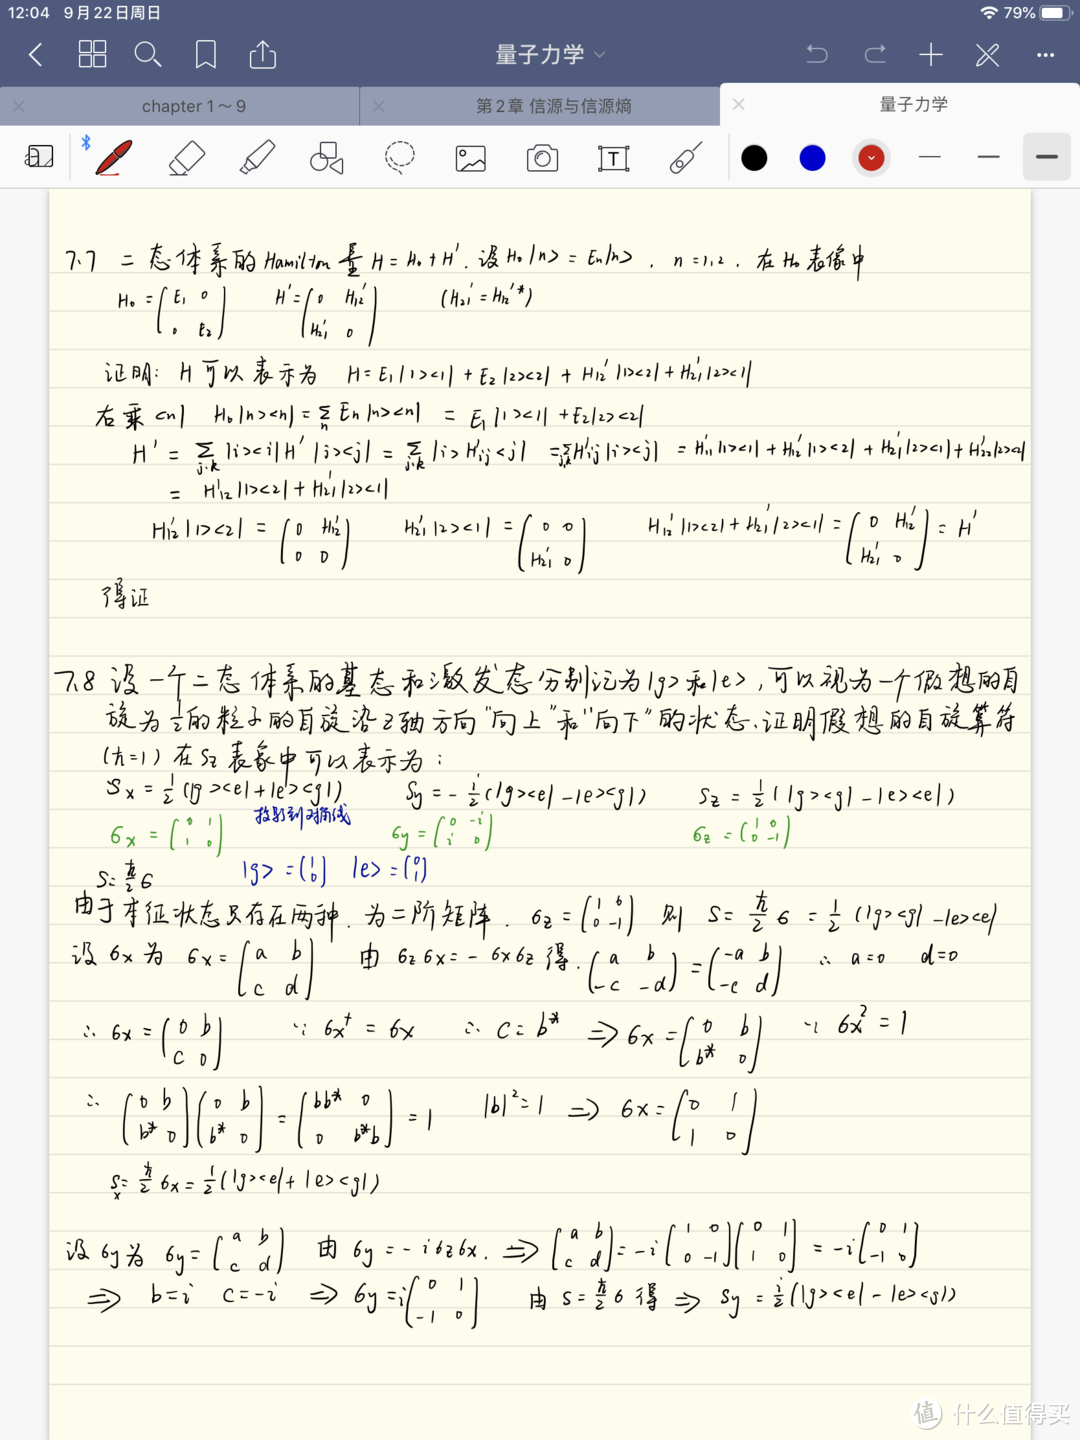 12:04 9月22日周日
79%
量子力学
chapter 1～9
第2章 信源与信源熵
量子力学
7.7 二态体系的Hamilton量 H = H₀ + H′. 设 H₀|n> = Eₙ|n>, n = 1,2. 在H₀表象中
H₀ = (E₁ 0; 0 E₂) H′ = (0 H₁₂′; H₂₁′ 0) (H₂₁′ = H₁₂′*)
证明: H 可以表示为 H = E₁|1><1| + E₂|2><2| + H₁₂′|1><2| + H₂₁′|2><1|
右乘 <n| H₀|n><n| = Σₙ Eₙ|n><n| = E₁|1><1| + E₂|2><2|
H′ = Σ_{j.k} |i><i|H′|j><j| = Σ_{j.k} |i>H′ᵢⱼ<j| = Σ_{j.k} H′ᵢⱼ|i><j| = H₁₁′|1><1| + H₁₂′|1><2| + H₂₁′|2><1| + H₂₂′|2><2|
= H₁₂′|1><2| + H₂₁′|2><1|
H₁₂′|1><2| = (0 H₁₂′; 0 0) H₂₁′|2><1| = (0 0; H₂₁′ 0) H₁₂′|1><2| + H₂₁′|2><1| = (0 H₁₂′; H₂₁′ 0) = H′
得证
7.8 设一个二态体系的基态和激发态分别记为|g>和|e>, 可以视为一个假想的自
旋为½的粒子的自旋沿z轴方向"向上"和"向下"的状态. 证明假想的自旋算符
(ℏ=1) 在Sz表象中可以表示为:
Sx = ½(|g><e| + |e><g|) Sy = -i/2(|g><e| - |e><g|) Sz = ½(|g><g| - |e><e|)
投影到对角线
6x = (0 1; 1 0) 6y = (0 -i; i 0) 6z = (1 0; 0 -1)
S = ℏ/2 6 |g> = (1; 0) |e> = (0; 1)
由于本征状态只存在两种, 为二阶矩阵. 6z = (1 0; 0 -1) 则 S = ℏ/2 6 = ½(|g><g| - |e><e|
设 6x 为 6x = (a b; c d) 由 6z6x = -6x6z 得. (a b; -c -d) = (-a b; -c d) ∴ a=0 d=0
∴ 6x = (0 b; c 0) ∵ 6x⁺ = 6x ∴ c = b* ⇒ 6x = (0 b; b* 0) ∵ 6x² = 1
∴ (0 b; b* 0)(0 b; b* 0) = (bb* 0; 0 b*b) = 1 |b|² = 1 ⇒ 6x = (0 1; 1 0)
Sx = ℏ/2 6x = ½(|g><e| + |e><g|)
设 6y 为 6y = (a b; c d) 由 6y = -i6z6x. ⇒ (a b; c d) = -i(1 0; 0 -1)(0 1; 1 0) = -i(0 1; -1 0)
⇒ b=i c=-i ⇒ 6y = i(0 1; -1 0) 由 S = ℏ/2 6 得 ⇒ Sy = i/2(|g><e| - |e><g|)
值 什么值得买